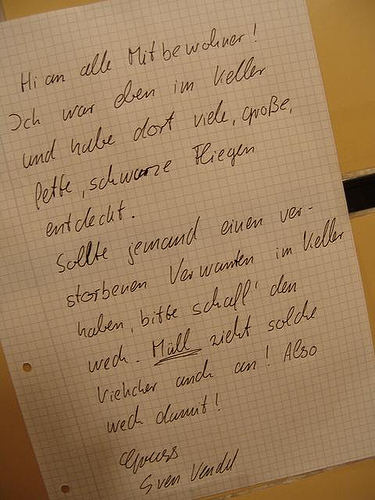 Hi an alle Mitbewohner!
Ich war eben im Keller
und habe dort viele, große,
fette, schwarze Fliegen
entdeckt.
Sollte jemand einen ver-
storbenen Verwanten im Keller
haben, bitte schaff' den
wech. Müll zieht solche
Viehcher auch an! Also
wech damit!
Gruss
Sven Vendel